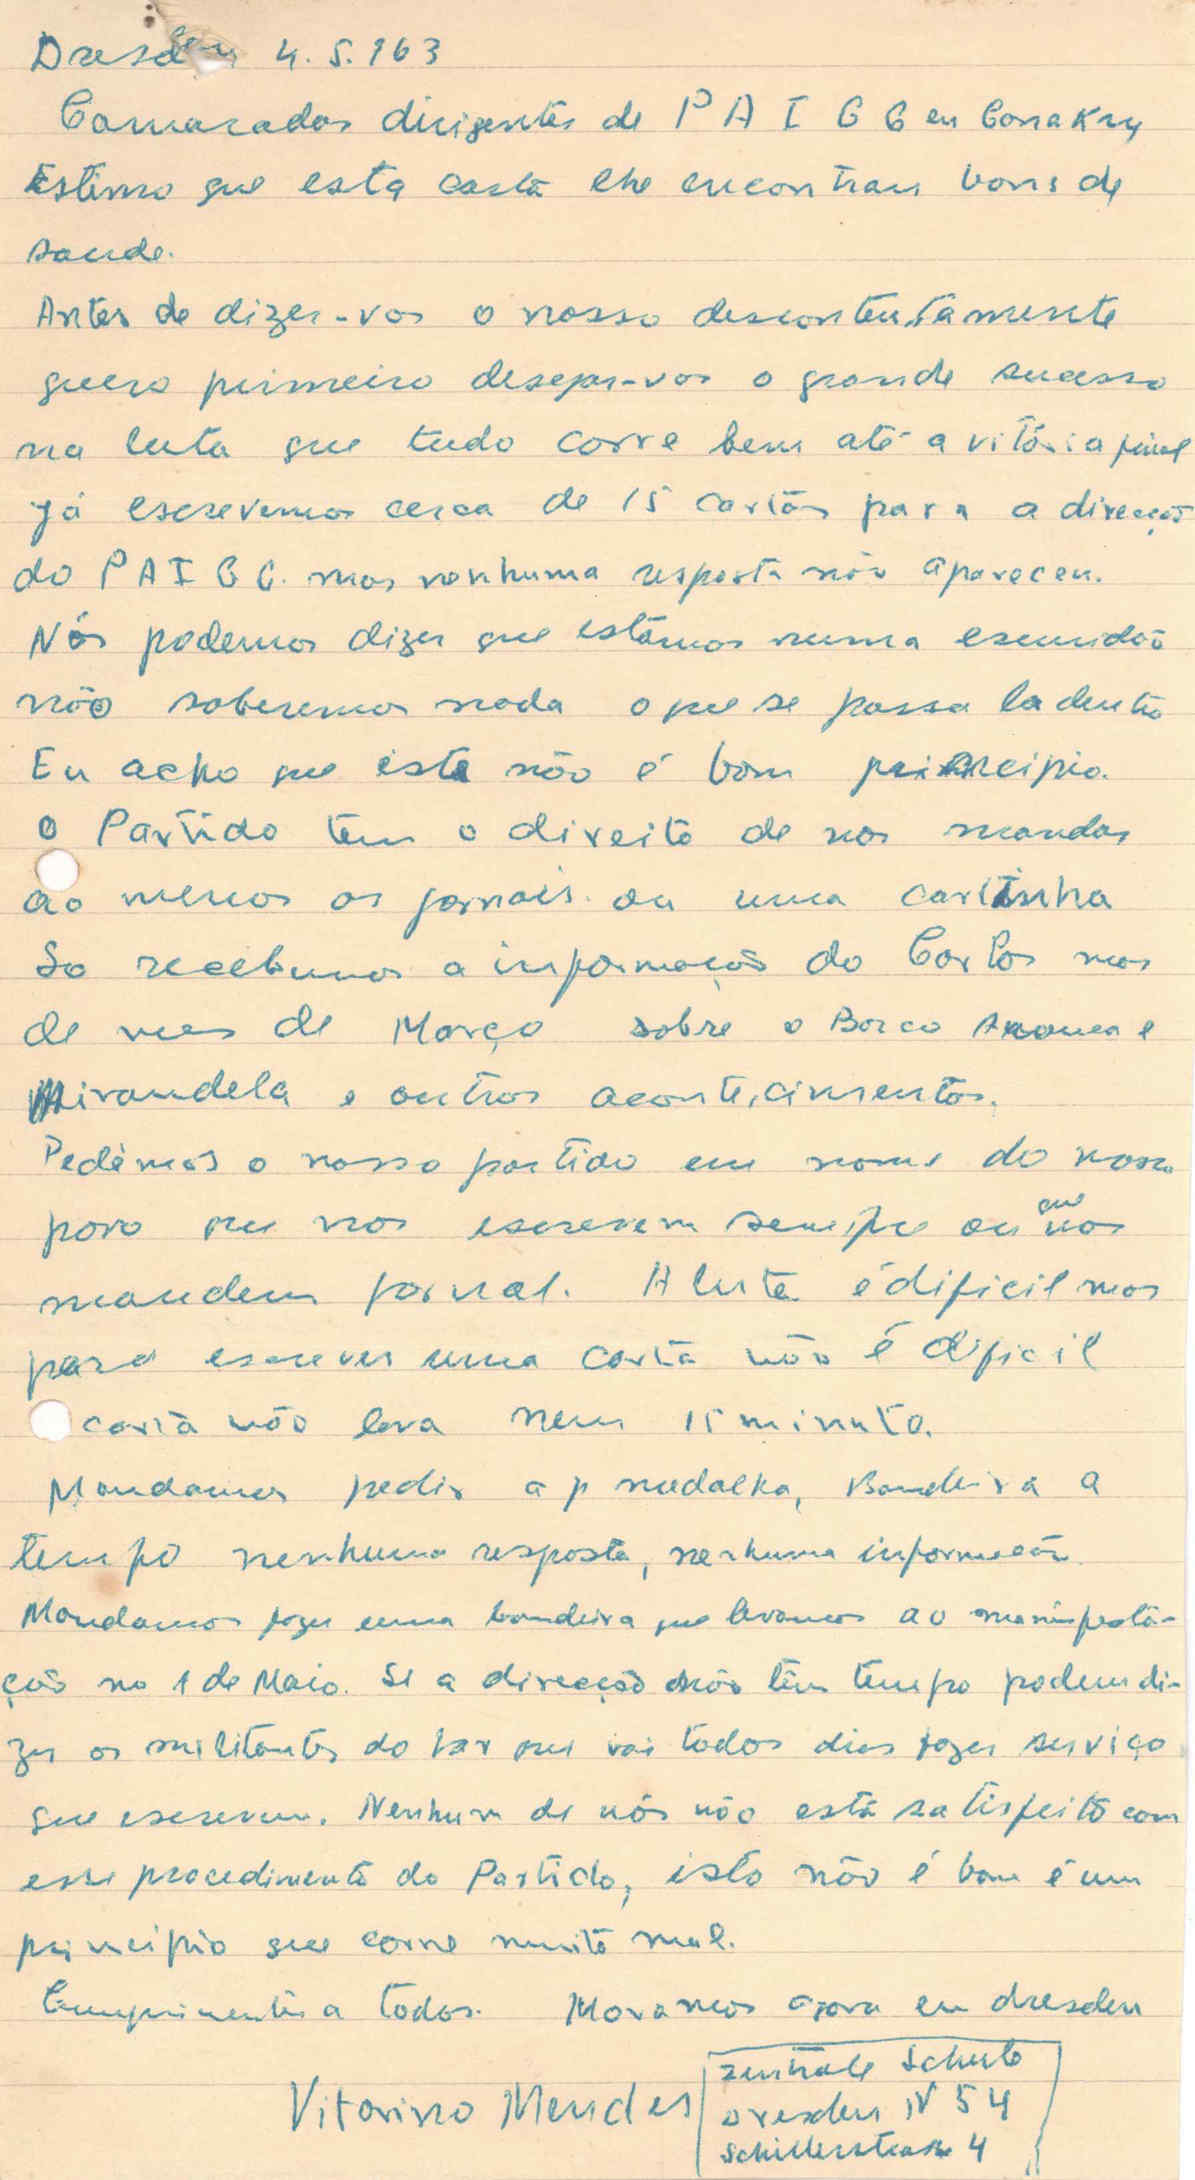 Dresden 4.5.963
Camaradas dirigentes de P A I G C en Conakry
Estimo que esta carta lhe encontram bons de
saude.
Antes de dizer-vos o nosso descontentamente
quero primeiro desejar-vos o grande sucesso
na luta que tudo corre bem até a vitória final
Já escrevemos cerca de 15 cartas para a direcção
do P A I G C. mas nenhuma resposta não apareceu.
Nós podemos dizer que estâmos numa escuridão
não saberemos nada o que se passa la dentro
Eu acho que isto não é bom principio.
O Partido tem o direito de nos mandar
ao menos os jornais ou uma cartinha
So recebemos a informação do Carlos nos
de mes de Março sobre o Barco Arouca e
Mirandela e outros acontecimentos.
Pedêmos o nosso partido em nome do nosso
povo que nos escrevem sempre ou que nos
mandem jornal. A luta é dificil mas
para escrever uma carta não é dificil
carta não leva nem 15 minuto.
Mandamos pedir a p medalha, Bandeira a
tempo nenhuma resposta, nenhuma informação.
Mandamos fazer uma bandeira que levamos ao manifesta-
ção no 1 de Maio. Se a direcção não têm tempo podem di-
zer os militantes do lar que vai todos dias fazer serviço
que escrevem. Nenhum de nós não está satisfeito com
esse procedimento do Partido, isto não é bom é um
principio que corre muito mal.
Cumprimentos a todos. Moramos agora em dresden
Vitorino Mendes
zentrale Schule
Dresden N 54
Schillerstrasse 4